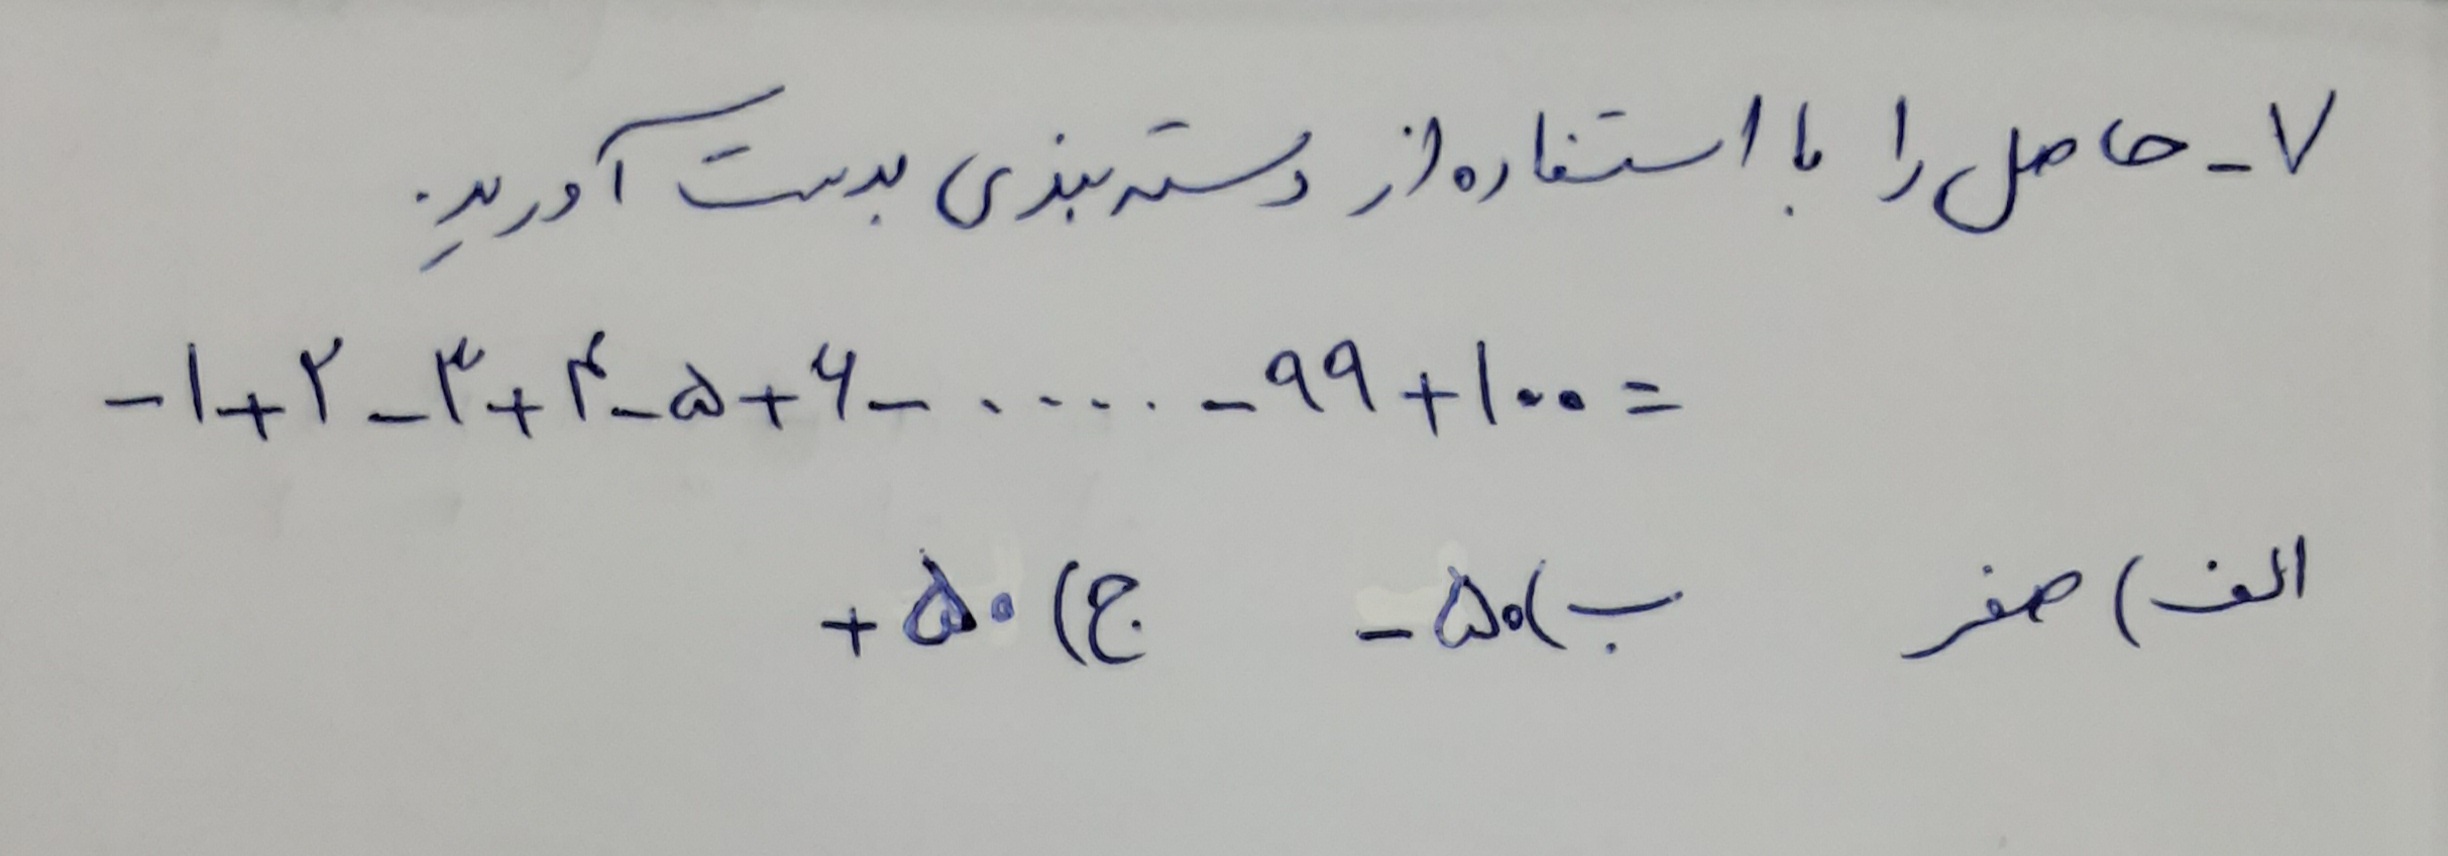 ۷- حاصل را با استفاده از دسته بندی بدست آورید.
-۱+۲-۳+۴-۵+۶- ..... -۹۹+۱۰۰=
الف) صفر ب) -۵۰ ج) +۵۰